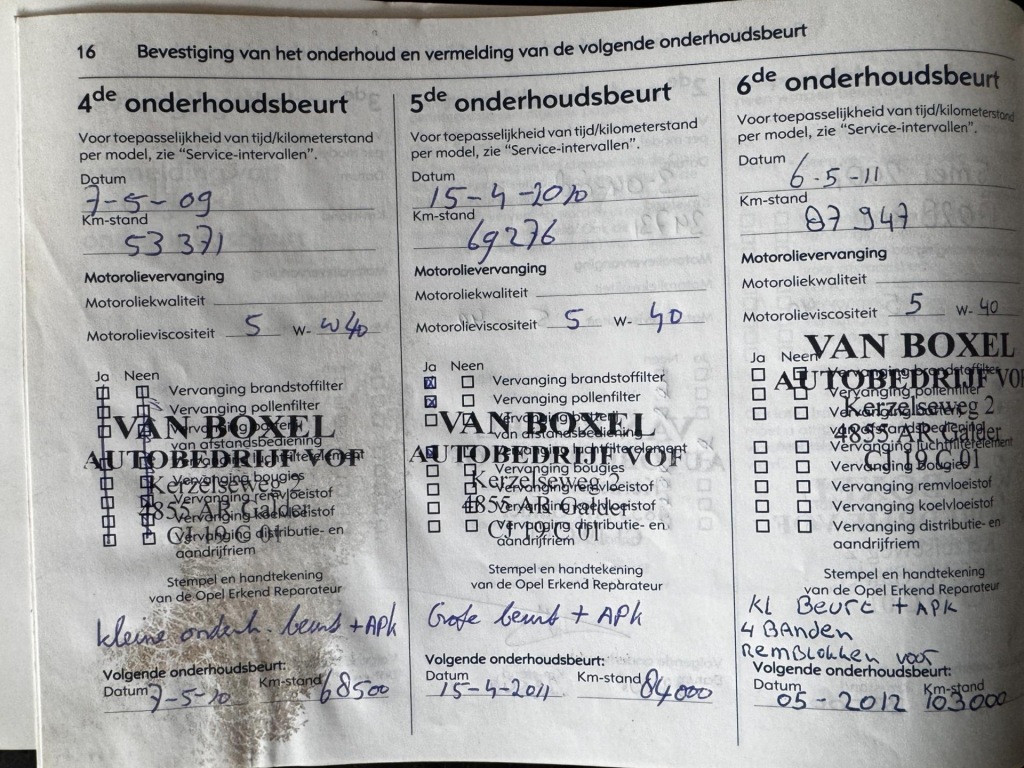 16 Bevestiging van het onderhoud en vermelding van de volgende onderhoudsbeurt
4de onderhoudsbeurt
Voor toepasselijkheid van tijd/kilometerstand
per model, zie “Service-intervallen”.
Datum
7-5-09
Km-stand
53 371
Motorolievervanging
Motoroliekwaliteit
Motorolieviscositeit 5 W- W40
Ja Neen
Vervanging brandstoffilter
Vervanging pollenfilter
VAN BOXEL
van afstandsbediening
AUTOBEDRIJF VOF
Vervanging bougies
Kerzelseweg 2
Vervanging remvloeistof
4855 AR Galder
Vervanging koelvloeistof
CJ 19 C 01
Vervanging distributie- en
aandrijfriem
Stempel en handtekening
van de Opel Erkend Reparateur
kleine onderh. beurt + APK
Volgende onderhoudsbeurt:
Datum 7-5-10 Km-stand 68500
5de onderhoudsbeurt
Voor toepasselijkheid van tijd/kilometerstand
per model, zie “Service-intervallen”.
Datum
15-4-2010
Km-stand
69276
Motorolievervanging
Motoroliekwaliteit
Motorolieviscositeit 5 W- 40
Ja Neen
Vervanging brandstoffilter
Vervanging pollenfilter
VAN BOXEL
van afstandsbediening
AUTOBEDRIJF VOF
Vervanging bougies
Kerzelseweg 2
Vervanging remvloeistof
4855 AR Galder
Vervanging koelvloeistof
CJ 19 C 01
Vervanging distributie- en
aandrijfriem
Stempel en handtekening
van de Opel Erkend Reparateur
Grote beurt + APK
Volgende onderhoudsbeurt:
Datum 15-4-2011 Km-stand 84000
6de onderhoudsbeurt
Voor toepasselijkheid van tijd/kilometerstand
per model, zie “Service-intervallen”.
Datum
6-5-11
Km-stand
87 947
Motorolievervanging
Motoroliekwaliteit
Motorolieviscositeit 5 W- 40
Ja Neen
VAN BOXEL
Vervanging brandstoffilter
AUTOBEDRIJF VO
Vervanging pollenfilter
Kerzelseweg 2
van afstandsbediening
4855 AR Galder
Vervanging luchtfilterelement
CJ 19 C 01
Vervanging bougies
Vervanging remvloeistof
Vervanging koelvloeistof
Vervanging distributie- en
aandrijfriem
Stempel en handtekening
van de Opel Erkend Reparateur
KL Beurt + APK
4 BANDEN
Remblokken voor
Volgende onderhoudsbeurt:
Datum 05-2012 Km-stand 103000